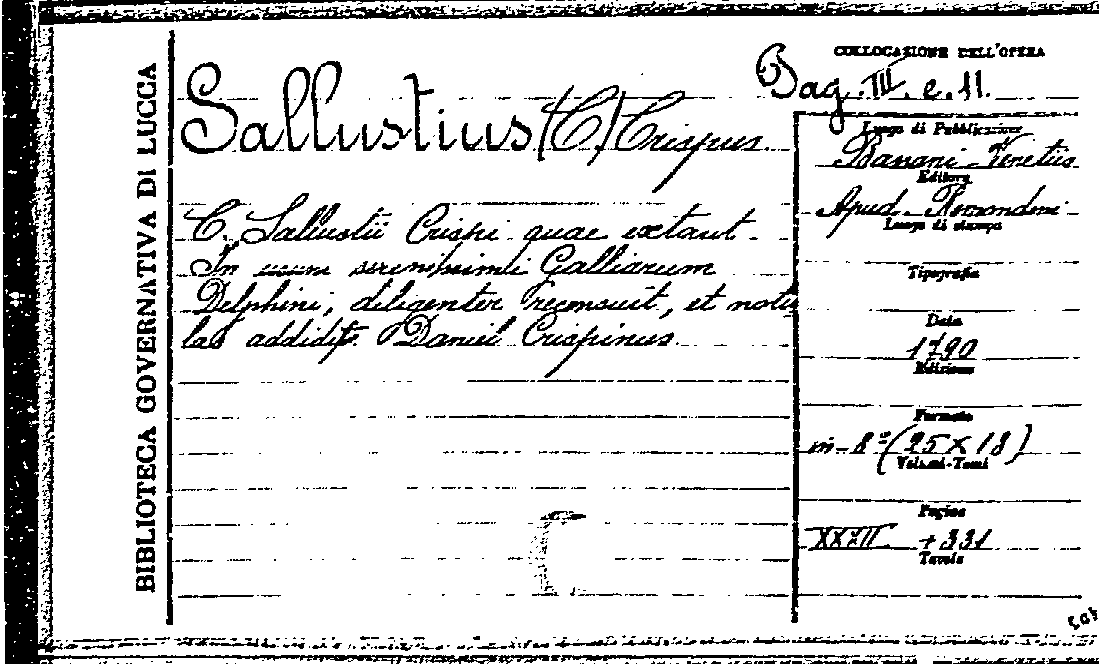 BIBLIOTECA GOVERNATIVA DI LUCCA
COLLOCAZIONE DELL'OPERA
Bag. III. e. 11.
Sallustius (C) Crispus.
C. Sallustii Crispi quae extant.
In usum serenissimi Galliarum
Delphini, diligenter recensuit, et notu
las addidit Daniel Crispinus.
Luogo di Pubblicazione
Bassani - Venetiis
Editore
Apud. Remondini
Luogo di stampa
Tipografia
Data
1790
Edizione
Formato
in-8º (25 X 18)
Volumi-Tomi
Pagine
+ 331
Tavole